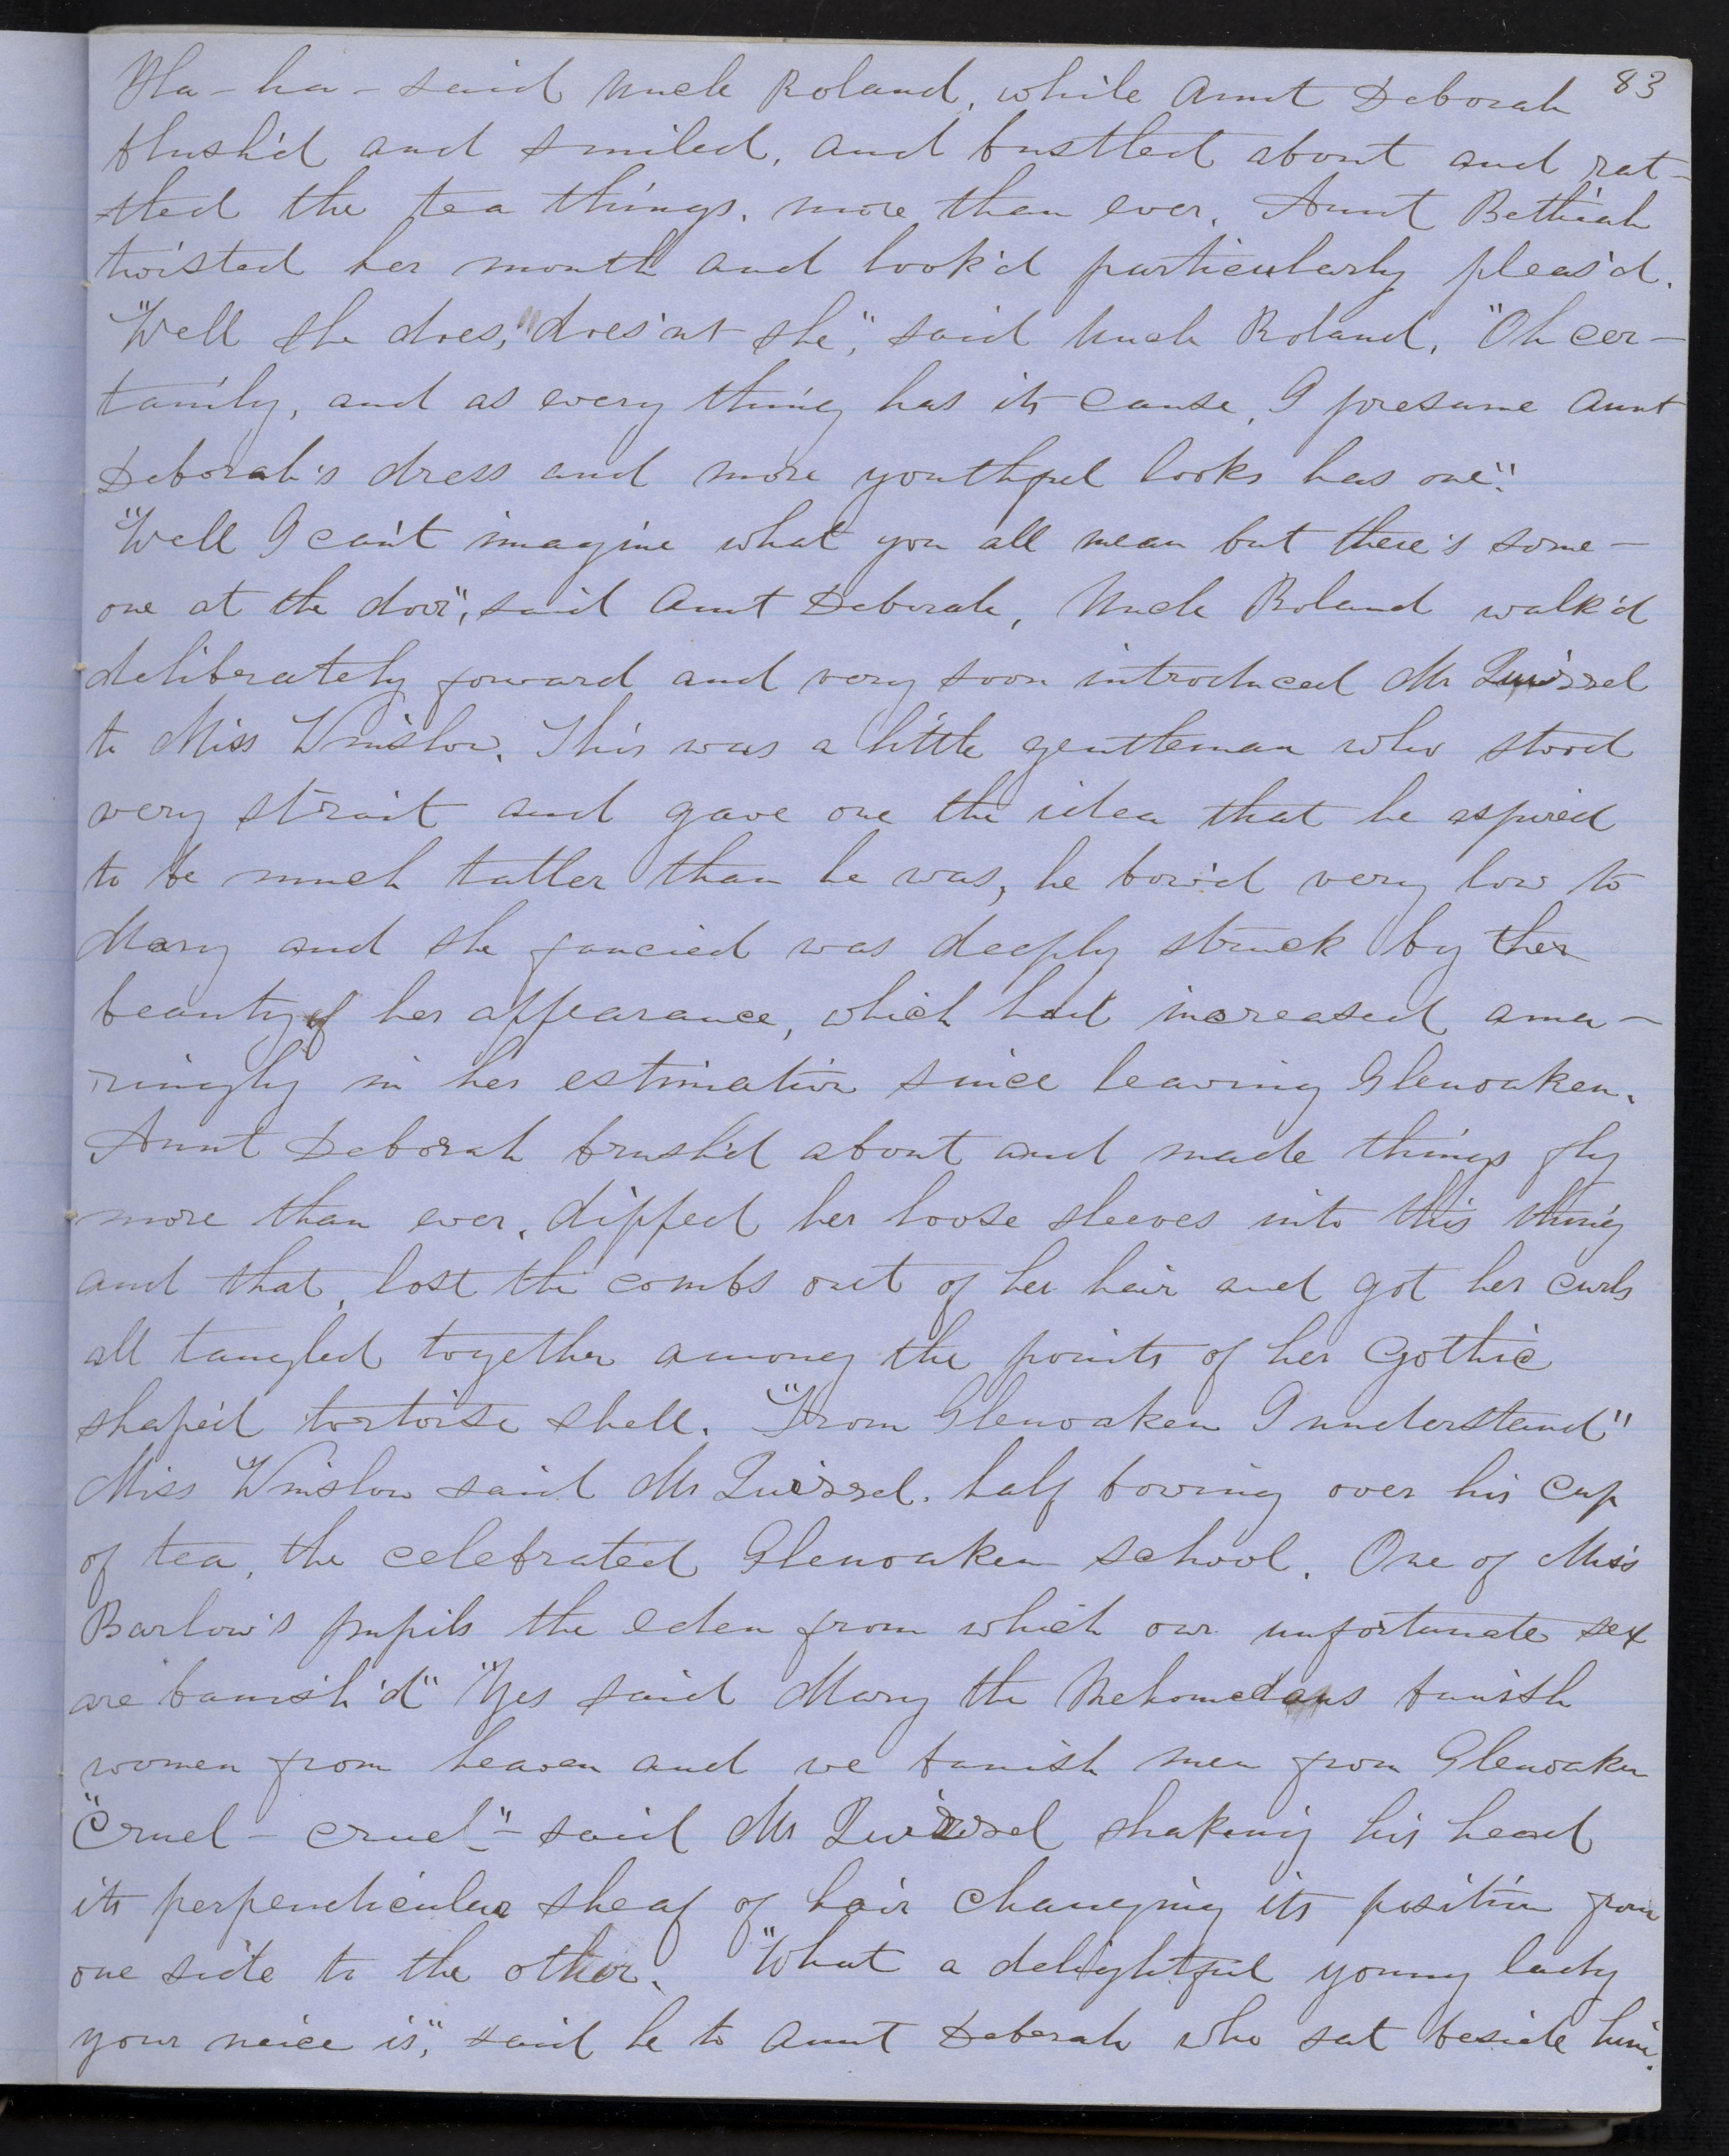 83
Ha-ha- said Uncle Roland, while Aunt Deborah
blush'd and smiled, and bustled about and rat-
tled the tea things, more than ever, Aunt Bethiah
twisted her mouth and look'd particularly pleas'd.
"Well she does," does'nt she", said Uncle Roland, "Oh cer-
tainly, and as every thing has its cause, I presume Aunt
Deborah's dress and more youthful looks has one".
"Well I can't imagine what you all mean but there's some-
one at the door", said Aunt Deborah, Uncle Roland walk'd
deliberately forward and very soon introduced Mr
to Miss Winslow. This was a little gentleman who stood
very strait and gave one the idea that he aspired
to be much taller than he was, he bow'd very low to
Mary and she fancied was deeply struck by the
beauty of her appearance, which had increased ama-
zingly in her estimation since leaving Glenoaken.
Aunt Deborah brush'd about and made things fly
more than ever, dipped her loose sleeves into this thing
and that, lost the combs out of her hair and got her curls
all tangled together among the points of her Gothic
shape'd tortoise shell. "From Glenoaken I understand"
Miss Winslow said Mr half bowing over his cup
of tea, the celebrated Glenoaken school. One of Miss
Barlow's pupils the eden from which our unfortunate sex
are banish'd" "Yes said Mary the Mehomedans banish
women from heaven and we banish men from Glenoaken
"Cruel - cruel"- said Mr shaking his head
its perpendicular sheaf of hair changing its position from
one side to the other. "What a delightful young lady
your neice is", said he to Aunt Deborah who sat beside him.